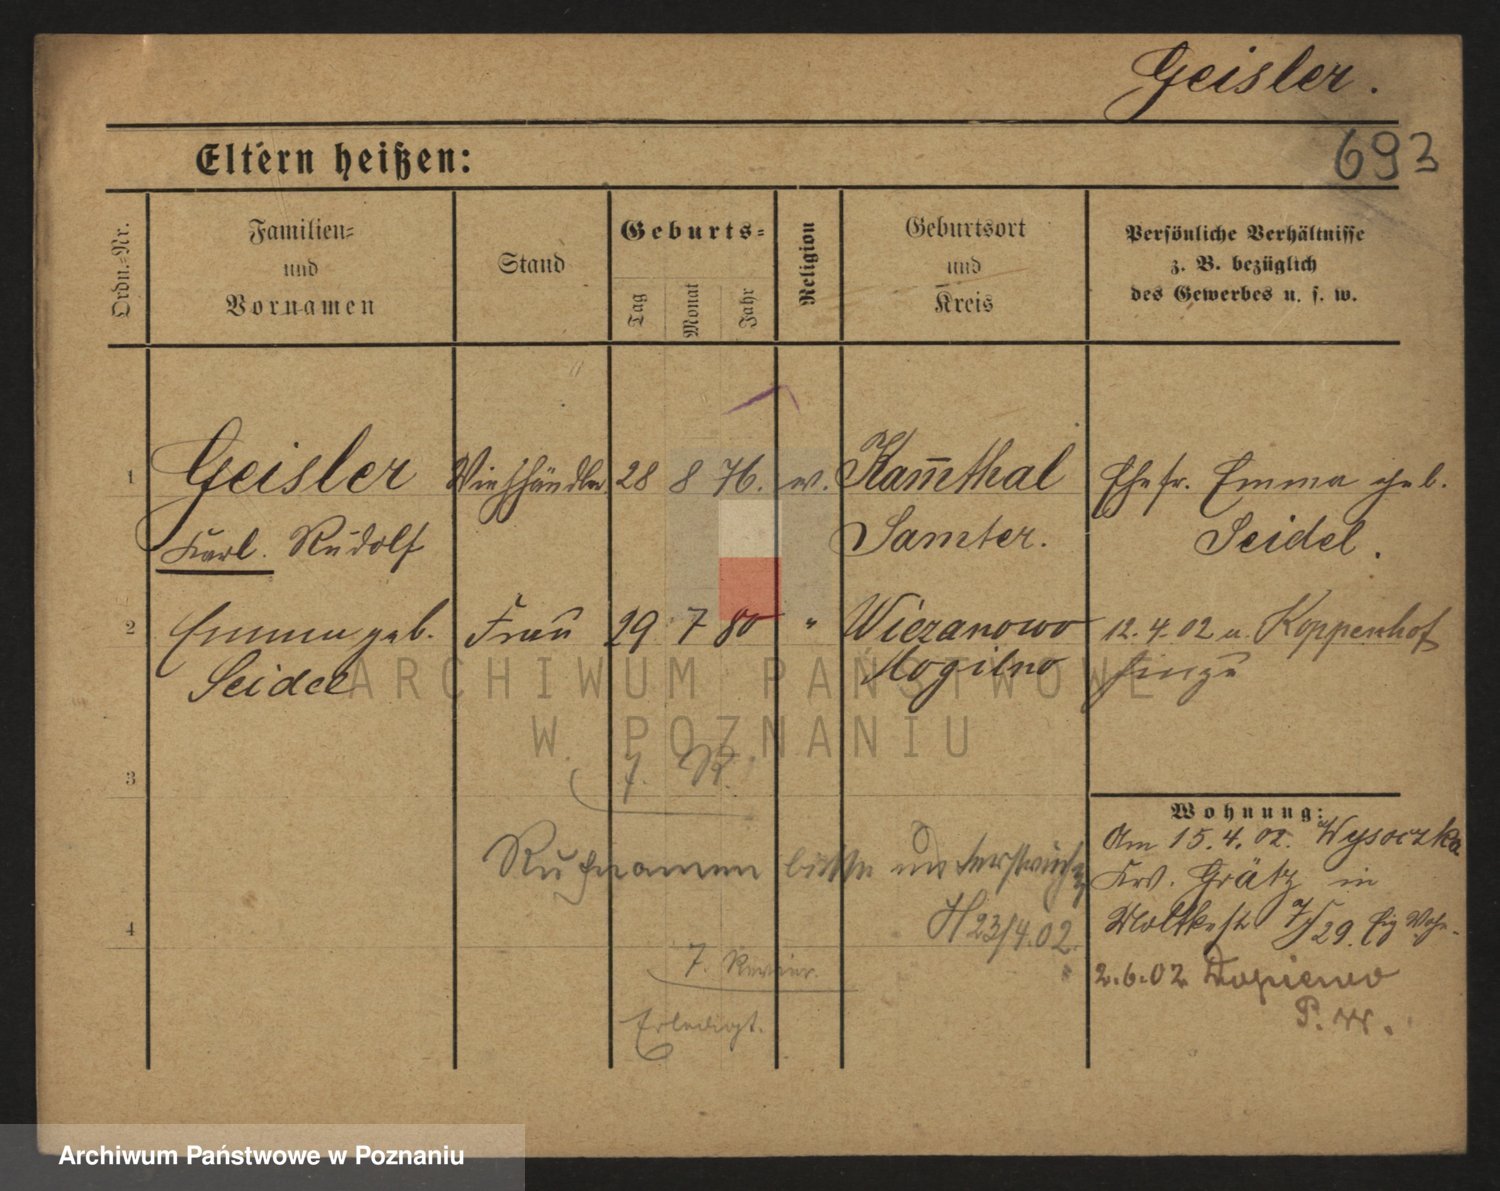 Geisler.
693
Eltern heißen:
Ordn.-Nr.
Familien-
und
Vornamen
Stand
Geburts-
Tag
Monat
Jahr
Religion
Geburtsort
und
Kreis
Persönliche Verhältnisse
z. B. bezüglich
des Gewerbes u. s. w.
1 Geisler Viehhändler 28 8 76. ev. Kam̅thal Ehefr. Emma geb.
Karl. Rudolf Samter. Seidel.
2 Emma geb. Frau 29 7 80 " Wiezanowo 12.4.02 u. Koppenhof
Seidel Mogilno
ARCHIWUM PAŃSTWOWE
W POZNANIU
3
7. R.
Wohnung:
Am 15.4.02. Wysoczka
Krs. Grätz in
Rufnamen bitte unterstreichen
H 23/4.02.
4
Moltkestr 7/29.
7. Revier.
2.6.02 Dopiewo
P. W.
Erledigt.
Archiwum Państwowe w Poznaniu